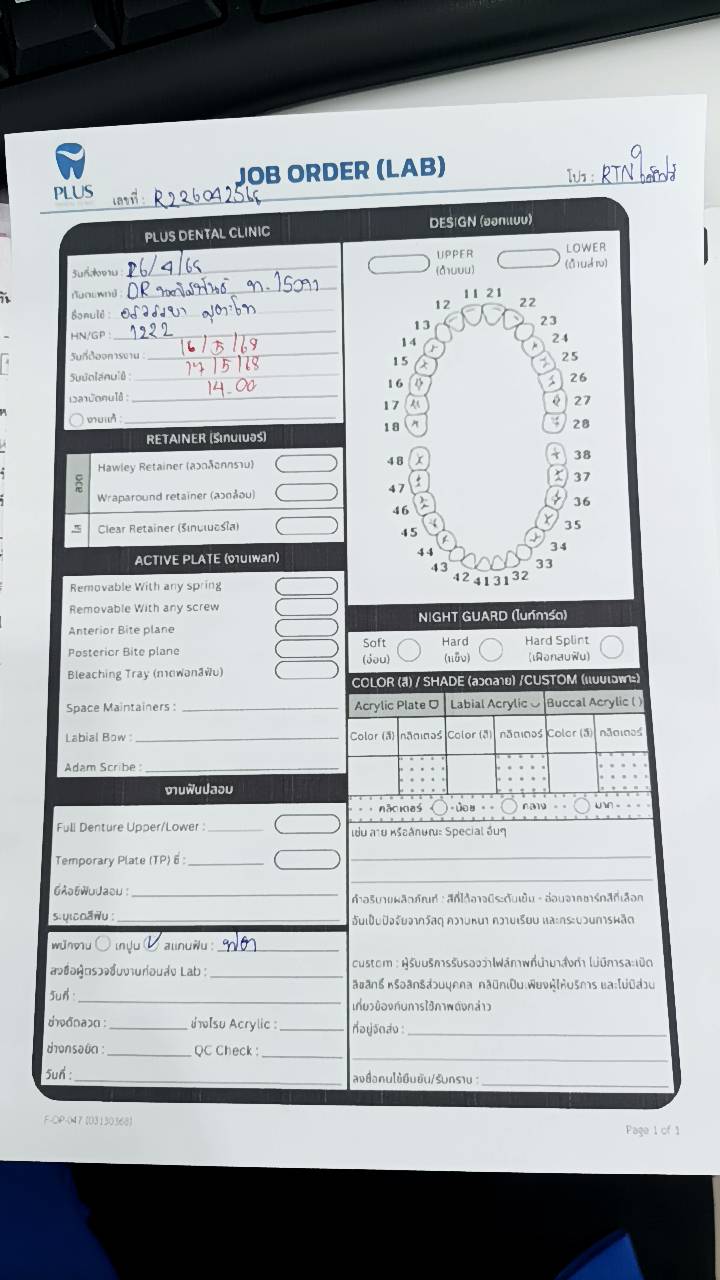 PLUS
JOB ORDER (LAB)
เลขที่ : R22604256
โปร : RTN
PLUS DENTAL CLINIC
วันที่ส่งงาน : 26/4/68
ทันตแพทย์ : DR
ชื่อคนไข้ :
HN/GP : 1222
วันที่ต้องการงาน : 16/5/68
วันนัดใส่คนไข้ : 17/5/68
เวลานัดคนไข้ : 14.00
งานแก้ :
RETAINER (รีเทนเนอร์)
ลวด
Hawley Retainer (ลวดล็อกกราม)
Wraparound retainer (ลวดล้อม)
ใส
Clear Retainer (รีเทนเนอร์ใส)
ACTIVE PLATE (งานเพลท)
Removable With any spring
Removable With any screw
Anterior Bite plane
Posterior Bite plane
Bleaching Tray (ถาดฟอกสีฟัน)
Space Maintainers :
Labial Bow :
Adam Scribe :
งานฟันปลอม
Full Denture Upper/Lower :
Temporary Plate (TP) ซี่ :
ยี่ห้อซี่ฟันปลอม :
ระบุเฉดสีฟัน :
พนักงาน เทปูน สแกนฟัน :
ลงชื่อผู้ตรวจชิ้นงานก่อนส่ง Lab :
วันที่ :
ช่างดัดลวด : ช่างโรย Acrylic :
ช่างกรอขัด : QC Check :
วันที่ :
DESIGN (ออกแบบ)
UPPER
(ด้านบน)
LOWER
(ด้านล่าง)
11 21
12 22
13 23
14 24
15 25
16 26
17 27
18 28
48 38
47 37
46 36
45 35
44 34
43 33
42 41 31 32
NIGHT GUARD (ไนท์การ์ด)
Soft
(อ่อน)
Hard
(แข็ง)
Hard Splint
(เฝือกสบฟัน)
COLOR (สี) / SHADE (ลวดลาย) /CUSTOM (แบบเฉพาะ)
Acrylic Plate Labial Acrylic Buccal Acrylic ( )
Color (สี) กลิตเตอร์ Color (สี) กลิตเตอร์ Color (สี) กลิตเตอร์
กลิตเตอร์ น้อย กลาง มาก
เช่น ลาย หรือลักษณะ Special อื่นๆ
คำอธิบายผลิตภัณฑ์ : สีที่ได้อาจมีระดับเข้ม - อ่อนจากชาร์ทสีที่เลือก
อันเป็นปัจจัยจากวัสดุ ความหนา ความเรียบ และกระบวนการผลิต
custom : ผู้รับบริการรับรองว่าไฟล์ภาพที่นำมาสั่งทำ ไม่มีการละเมิด
ลิขสิทธิ์ หรือสิทธิส่วนบุคคล คลินิกเป็นเพียงผู้ให้บริการ และไม่มีส่วน
เกี่ยวข้องกับการใช้ภาพดังกล่าว
ที่อยู่จัดส่ง :
ลงชื่อคนไข้ยืนยัน/รับทราบ :
F-OP-047 (03130368)
Page 1 of 1